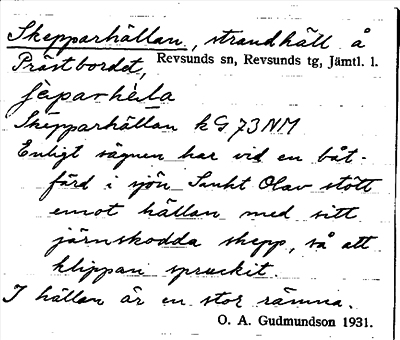 Skepparhällan, strandhäll å
Prästbordet, Revsunds sn, Revsunds tg, Jämtl. l.
Skepparhällan k G. 73 NM
Enligt sägnen har vid en båt-
färd i sjön Sankt Olav stött
emot hällan med sitt
järnskodda skepp, så att
klippan spruckit.
I hällan är en stor rämna.
O. A. Gudmundson 1931.